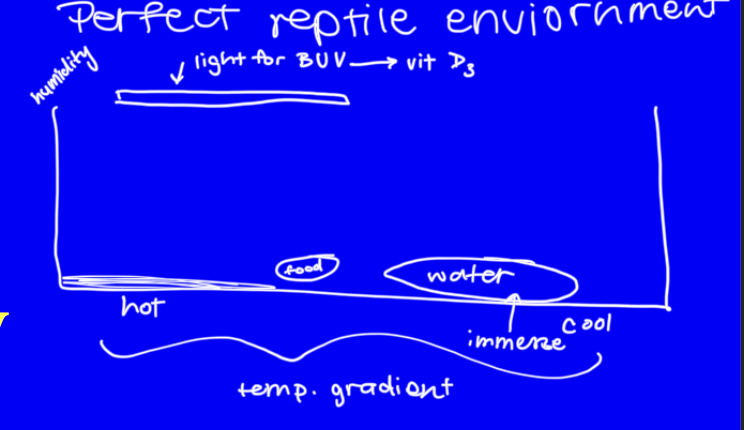 Perfect reptile enviornment
humidity
light for BUV → vit D3
food
water
hot
cool
immerse
temp. gradient